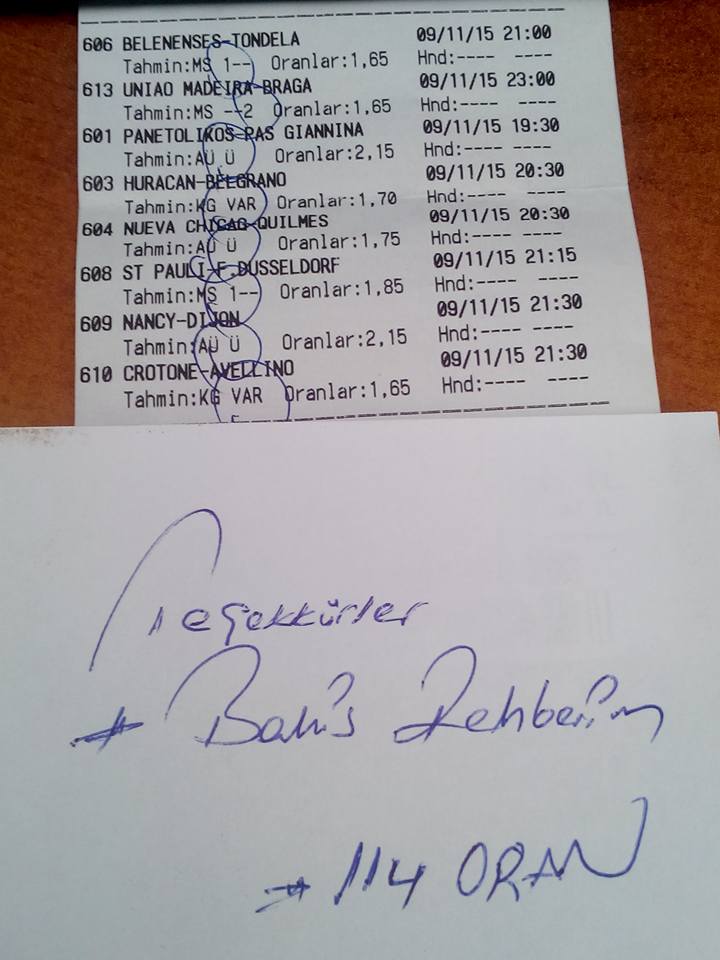 606 BELENENSES-TONDELA 09/11/15 21:00
Tahmin:MS 1-- Oranlar:1,65 Hnd:---- ----
613 UNIAO MADEIRA-BRAGA 09/11/15 23:00
Tahmin:MS --2 Oranlar:1,65 Hnd:---- ----
601 PANETOLIKOS-PAS GIANNINA 09/11/15 19:30
Tahmin:AÜ Ü Oranlar:2,15 Hnd:---- ----
603 HURACAN-BELGRANO 09/11/15 20:30
Tahmin:KG VAR Oranlar:1,70 Hnd:---- ----
604 NUEVA CHICAG-QUILMES 09/11/15 20:30
Tahmin:AÜ Ü Oranlar:1,75 Hnd:---- ----
608 ST PAULI-F.DUSSELDORF 09/11/15 21:15
Tahmin:MS 1-- Oranlar:1,85 Hnd:---- ----
609 NANCY-DIJON 09/11/15 21:30
Tahmin:AÜ Ü Oranlar:2,15 Hnd:---- ----
610 CROTONE-AVELLINO 09/11/15 21:30
Tahmin:KG VAR Oranlar:1,65 Hnd:---- ----
Teşekkürler
# Bahis Rehberim
→ 114 ORAN